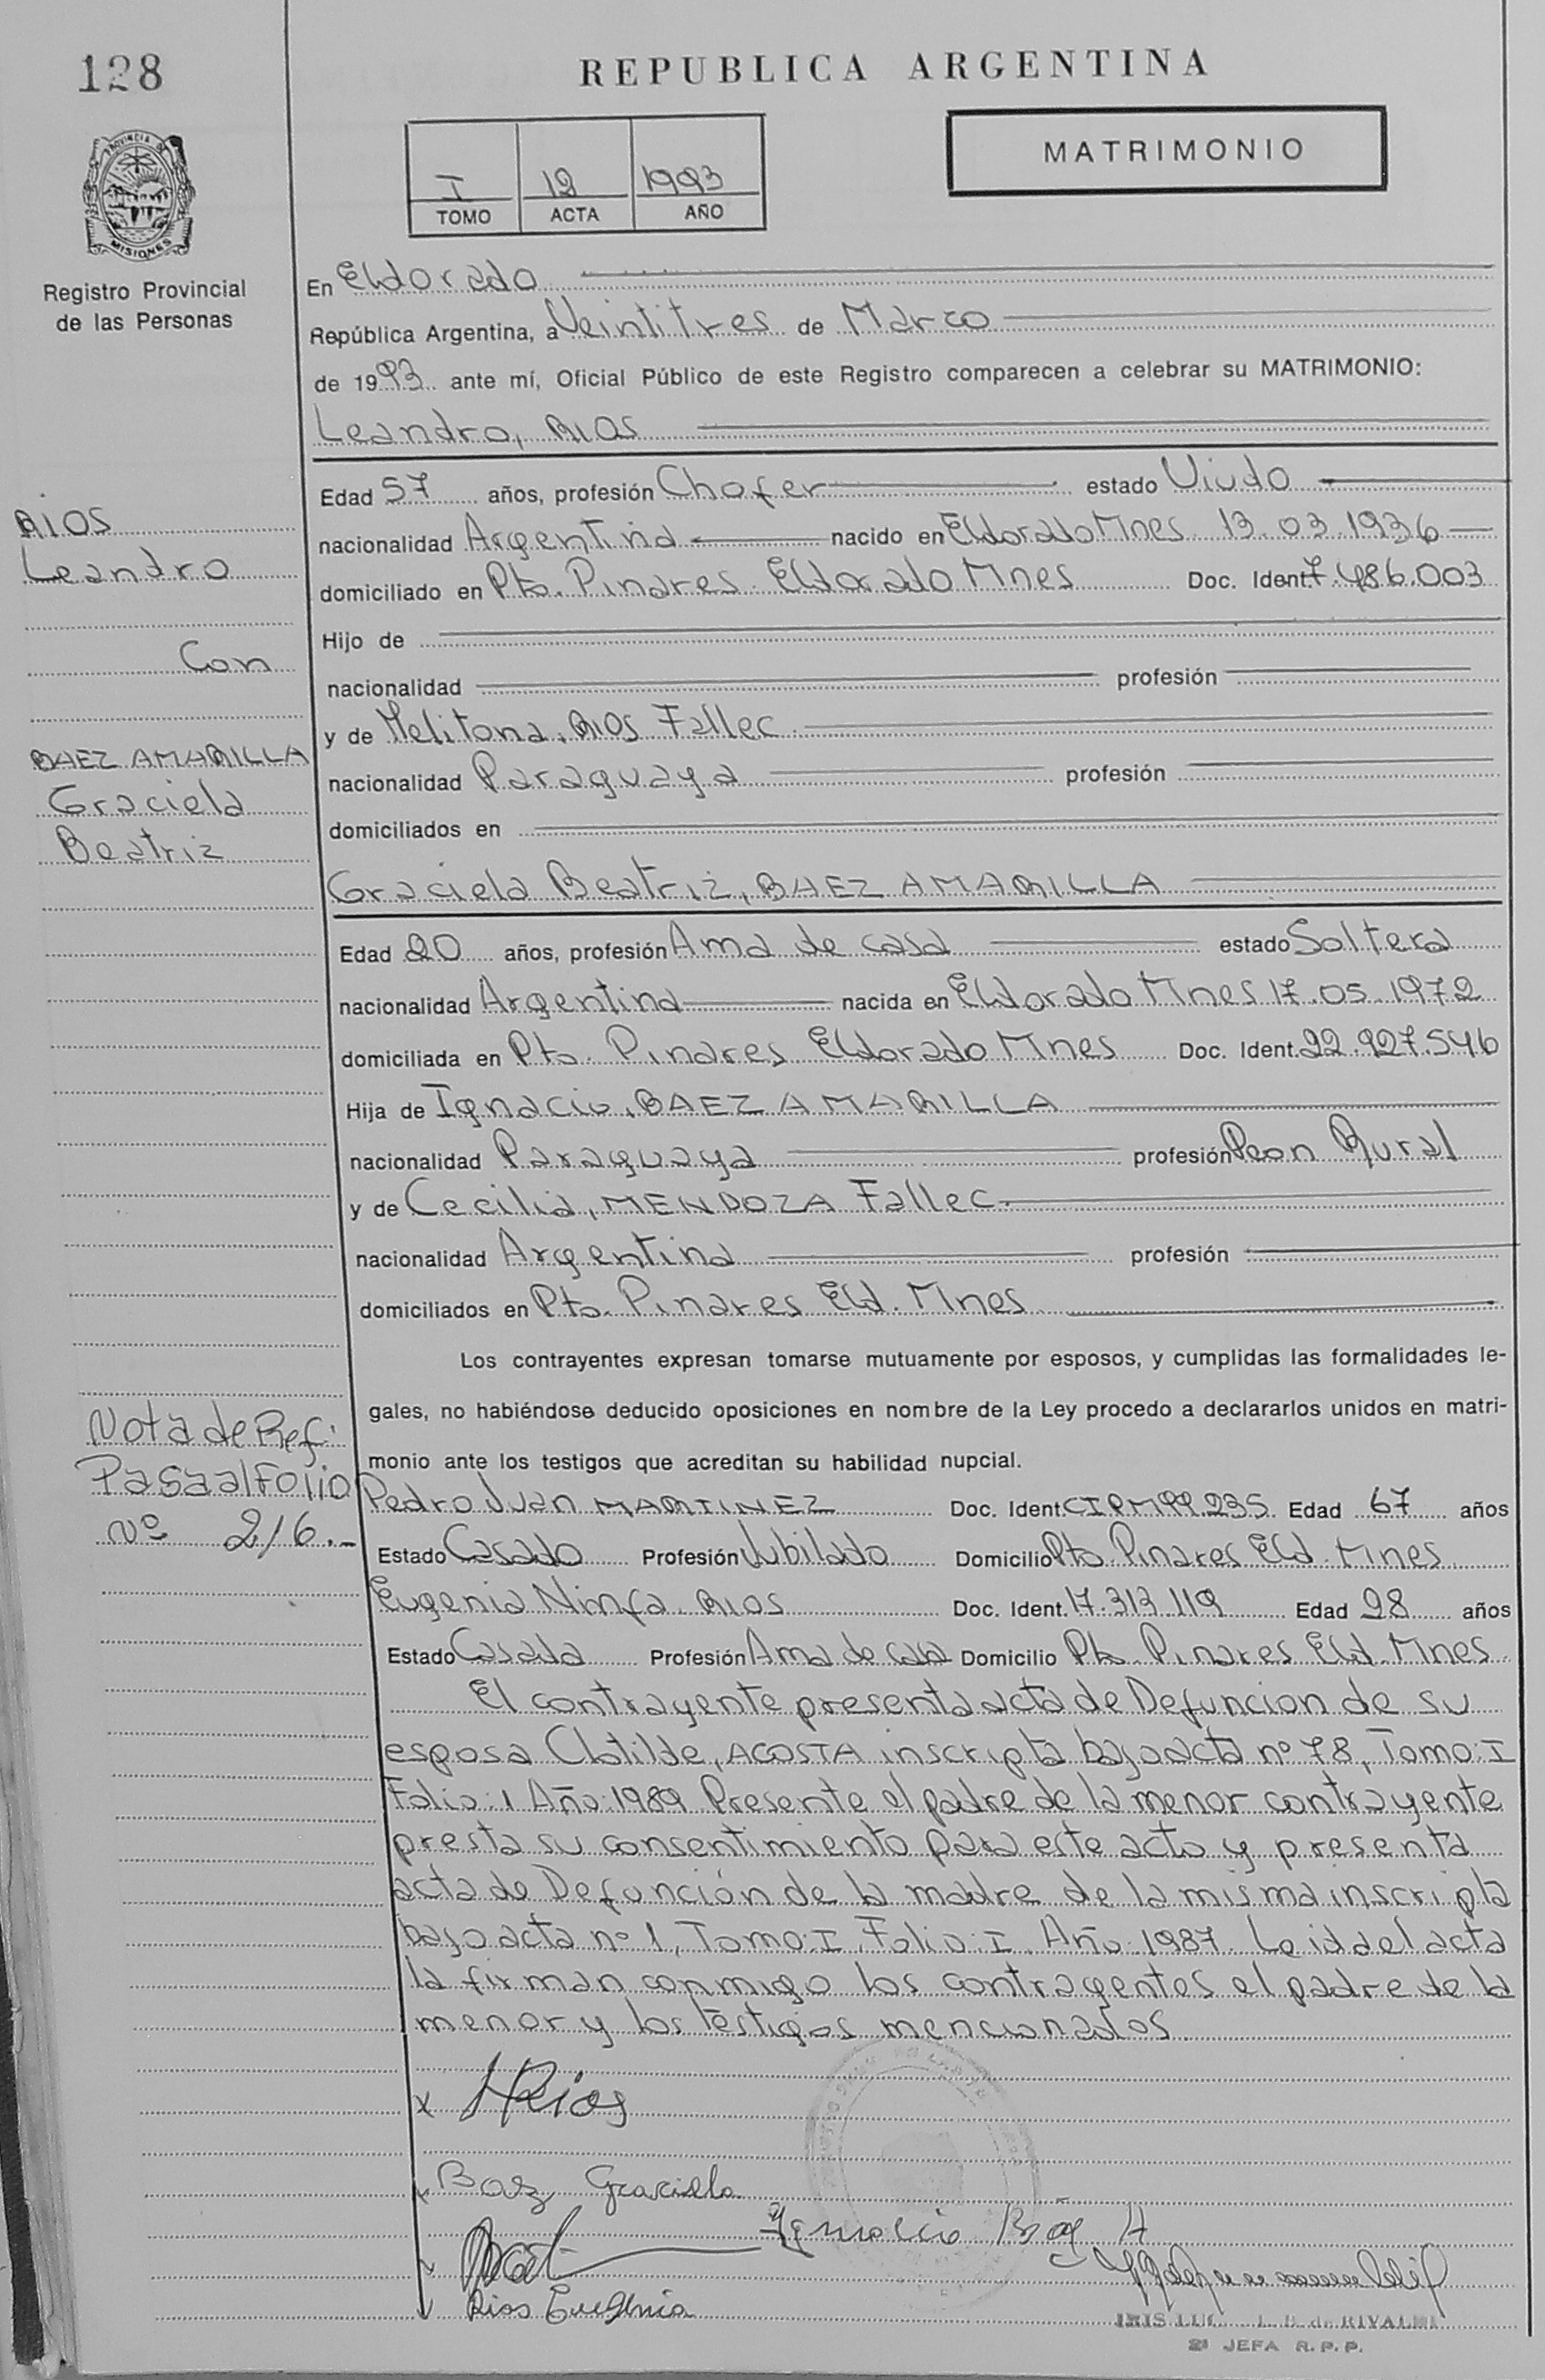 128
REPUBLICA ARGENTINA
MATRIMONIO
I 12 1993
TOMO ACTA AÑO
PROVINCIA DE
MISIONES
Registro Provincial
de las Personas
En Eldorado
República Argentina, a Veintitres de Marzo
de 1993 ante mí, Oficial Público de este Registro comparecen a celebrar su MATRIMONIO:
Leandro, RIOS
Edad 57 años, profesión Chofer estado Viudo
nacionalidad Argentina nacido en Eldorado Mnes 13.03.1936
domiciliado en Pto. Pinares Eldorado Mnes Doc. Ident. 7.486.003
Hijo de
nacionalidad profesión
y de Melitona, RIOS Fallec.
nacionalidad Paraguaya profesión
domiciliados en
RIOS
Leandro
Con
BAEZ AMARILLA
Graciela
Beatriz
Graciela Beatriz, BAEZ AMARILLA
Edad 20 años, profesión Ama de casa estado Soltera
nacionalidad Argentina nacida en Eldorado Mnes 17.05.1972
domiciliada en Pto. Pinares Eldorado Mnes Doc. Ident. 22.927.546
Hija de Ignacio, BAEZ AMARILLA
nacionalidad Paraguaya profesión Peon Rural
y de Cecilia, MENDOZA Fallec.
nacionalidad Argentina profesión
domiciliados en Pto. Pinares Eld. Mnes
Los contrayentes expresan tomarse mutuamente por esposos, y cumplidas las formalidades le-
gales, no habiéndose deducido oposiciones en nombre de la Ley procedo a declararlos unidos en matri-
monio ante los testigos que acreditan su habilidad nupcial.
Nota de Ref:
Pasa al Folio
Nº 216.-
Pedro Juan MARTINEZ Doc. Ident. CIPM99.235 Edad 67 años
Estado Casado Profesión Jubilado Domicilio Pto. Pinares Eld. Mnes
Eugenia Ninfa RIOS Doc. Ident. 17.313.119 Edad 28 años
Estado Casada Profesión Ama de casa Domicilio Pto. Pinares Eld. Mnes.
El contrayente presenta acta de Defuncion de su
esposa Clotilde, ACOSTA inscripta bajo acta nº 78, Tomo: I
Folio: 1 Año: 1989 Presente el padre de la menor contrayente
presta su consentimiento para este acto y presenta
acta de Defunción de la madre de la misma inscripta
bajo acta nº 1, Tomo: I, Folio: I. Año: 1987. Leida el acta
la firman conmigo los contrayentes el padre de la
menor y los testigos mencionados
x Rios
x Baez Graciela
Ignacio Baez A
Rios Eugenia
de RIVALDI
JEFA R.P.P.